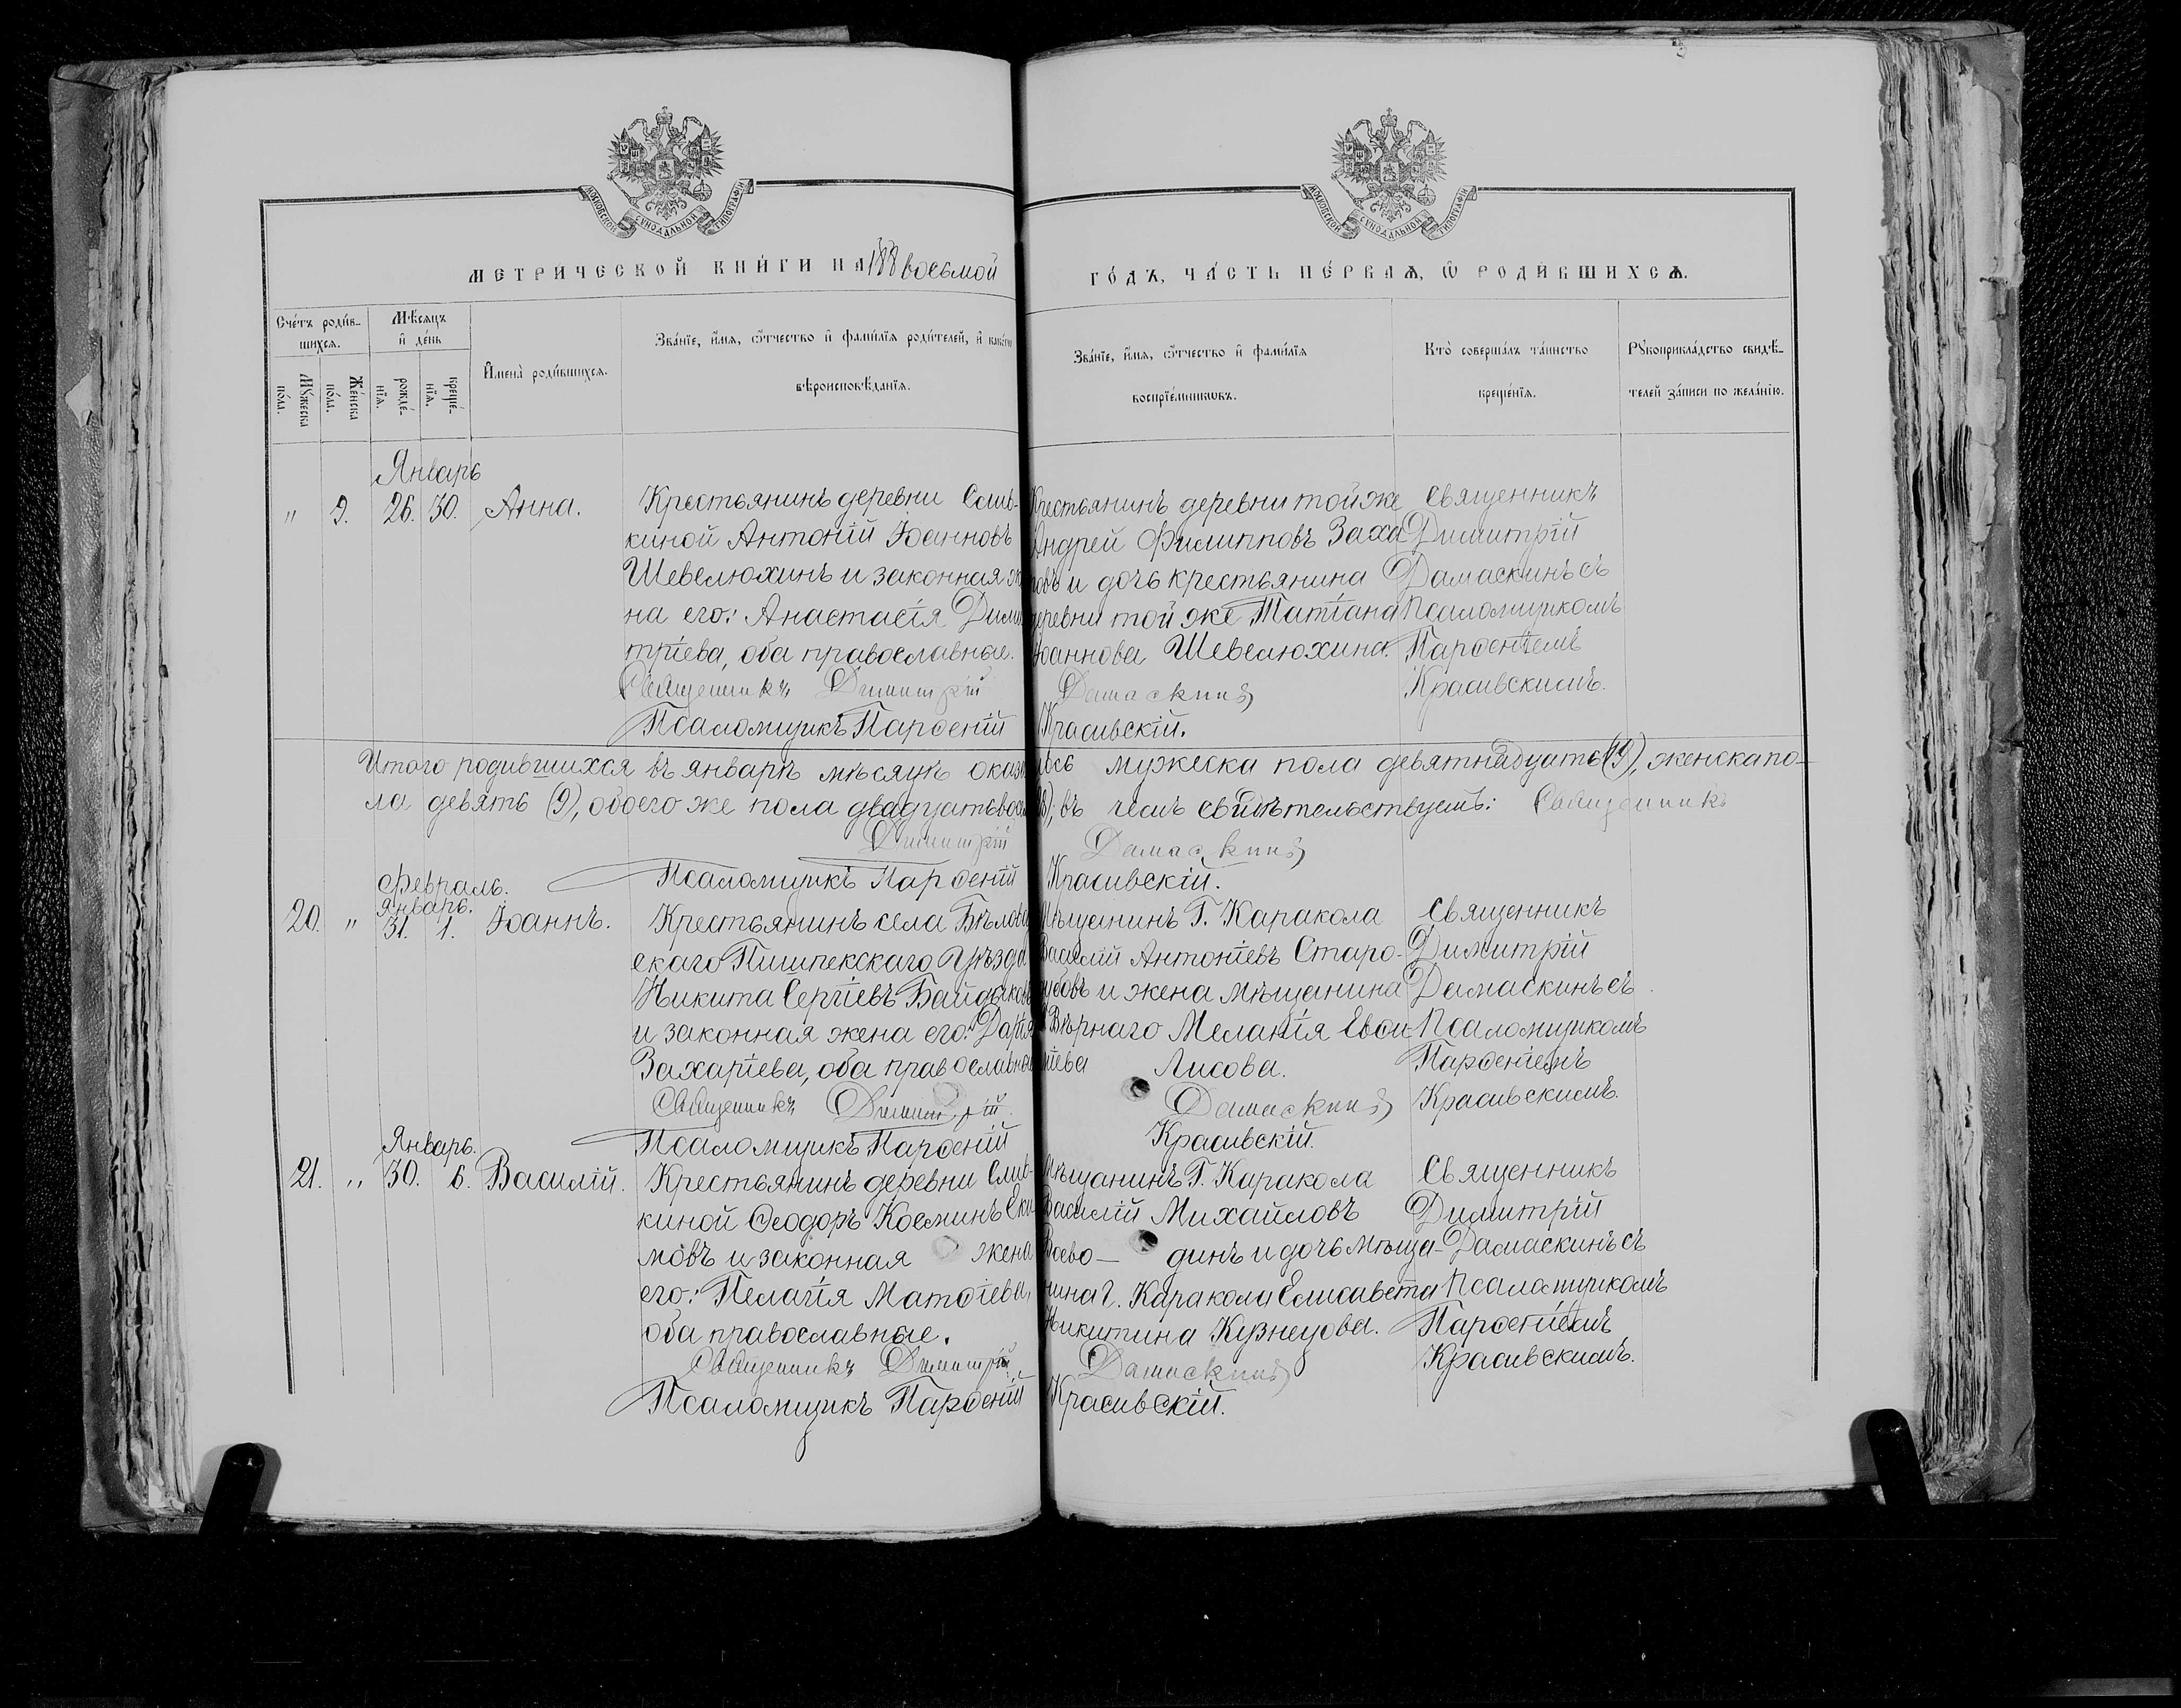 МОСКОВСКОЙ СУНОДАЛЬНОЙ ТИПОГРАФІИ
МОСКОВСКОЙ СУНОДАЛЬНОЙ ТИПОГРАФІИ
МЕТРИЧЕСКОЙ КНИГИ НА 188 восьмой ГОДЪ, ЧАСТЬ ПЕРВАѦ, Ѡ РОДИВШИХСѦ.
Счетъ родив-
шихсѧ.
Мужеска пола.
Женска пола.
Мѣсяцъ и день
рожде-нїѧ.
креще-нїѧ.
Имена родившихсѧ.
Званїе, имѧ, ѻтчество и фамилїѧ родителей, и
вѣроисповѣданїѧ.
Званїе, имѧ, ѻтчество и фамилїѧ
воспрїемникѡвъ.
Кто совершалъ таинство
крещенїѧ.
Рукоприкладство свидѣ-
телей записи по желанїю.
Январь
" 9. 26. 30. Анна.
Крестьянинъ деревни Слив-
киной Антоній Іоанновъ
Шевелюхинъ и законная же
на его: Анастасія Дими
тріева, оба православные.
Священникъ Димитрій
Псаломщикъ Парѳеній
Крестьянинъ деревни той же
Андрей Филипповъ Заха
ровъ и дочь крестьянина
деревни той же Татіана
Іоаннова Шевелюхина.
Дамаскинъ
Красивскій.
Священникъ
Димитрій
Дамаскинъ съ
Псаломщикомъ
Парѳеніемъ
Красивскимъ.
Итого родившихся въ январѣ мѣсяцѣ оказалось мужеска пола девятнадцать (19), женска по-
ла девять (9), обоего же пола двадцать восемь въ чемъ свидѣтельствуемъ: Священникъ
Димитрій Дамаскинъ
Псаломщикъ Парѳеній Красивскій.
Февраль.
Январь.
20. " 31. 1. Іоаннъ.
Крестьянинъ села Бѣловод
скаго Пишпекскаго Уѣзда
Никита Сергіевъ Байдаковъ
и законная жена его: Дарія
Захаріева, оба православные
Священникъ Димитрій
Псаломщикъ Парѳеній
Мѣщанинъ Г. Каракола
Василій Антоніевъ Старо-
дубовъ и жена мѣщанина
Г. Вѣрнаго Меланія Евѳи-
міева Лисова.
Дамаскинъ
Красивскій.
Священникъ
Димитрій
Дамаскинъ съ
Псаломщикомъ
Парѳеніемъ
Красивскимъ.
Январь.
21. " 30. 6. Василій.
Крестьянинъ деревни Слив-
киной Ѳеодоръ Косминъ Еки-
мовъ и законная жена
его: Пелагія Матѳіева,
оба православные.
Священникъ Димитрій
Псаломщикъ Парѳеній
Мѣщанинъ Г. Каракола
Василій Михайловъ
Воево- динъ и дочь мѣща-
нина г. Каракола Елисавета
Никитина Кузнецова.
Дамаскинъ
Красивскій.
Священникъ
Димитрій
Дамаскинъ съ
Псаломщикомъ
Парѳеніемъ
Красивскимъ.